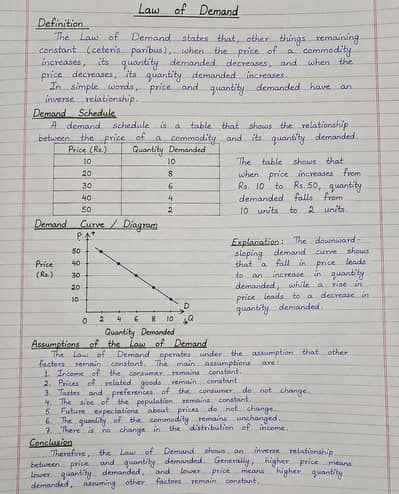 Law of Demand
Definition
The Law of Demand states that, other things remaining
constant (ceteris paribus), when the price of a commodity
increases, its quantity demanded decreases, and when the
price decreases, its quantity demanded increases.
In simple words, price and quantity demanded have an
inverse relationship.
Demand Schedule
A demand schedule is a table that shows the relationship
between the price of a commodity and its quantity demanded.
Price (Rs.) Quantity Demanded
10 10
20 8
30 6
40 4
50 2
The table shows that
when price increases from
Rs. 10 to Rs. 50, quantity
demanded falls from
10 units to 2 units.
Demand Curve / Diagram
P
50
40
30
20
10
Price
(Rs.)
D
0 2 4 6 8 10 Q
Quantity Demanded
Explanation: The downward-
sloping demand curve shows
that a fall in price leads
to an increase in quantity
demanded, while a rise in
price leads to a decrease in
quantity demanded.
Assumptions of the Law of Demand
The Law of Demand operates under the assumption that other
factors remain constant. The main assumptions are:
1. Income of the consumer remains constant.
2. Prices of related goods remain constant.
3. Tastes and preferences of the consumer do not change.
4. The size of the population remains constant.
5. Future expectations about prices do not change.
6. The quality of the commodity remains unchanged.
7. There is no change in the distribution of income.
Conclusion
Therefore, the Law of Demand shows an inverse relationship
between price and quantity demanded. Generally, higher price means
lower quantity demanded, and lower price means higher quantity
demanded, assuming other factors remain constant.